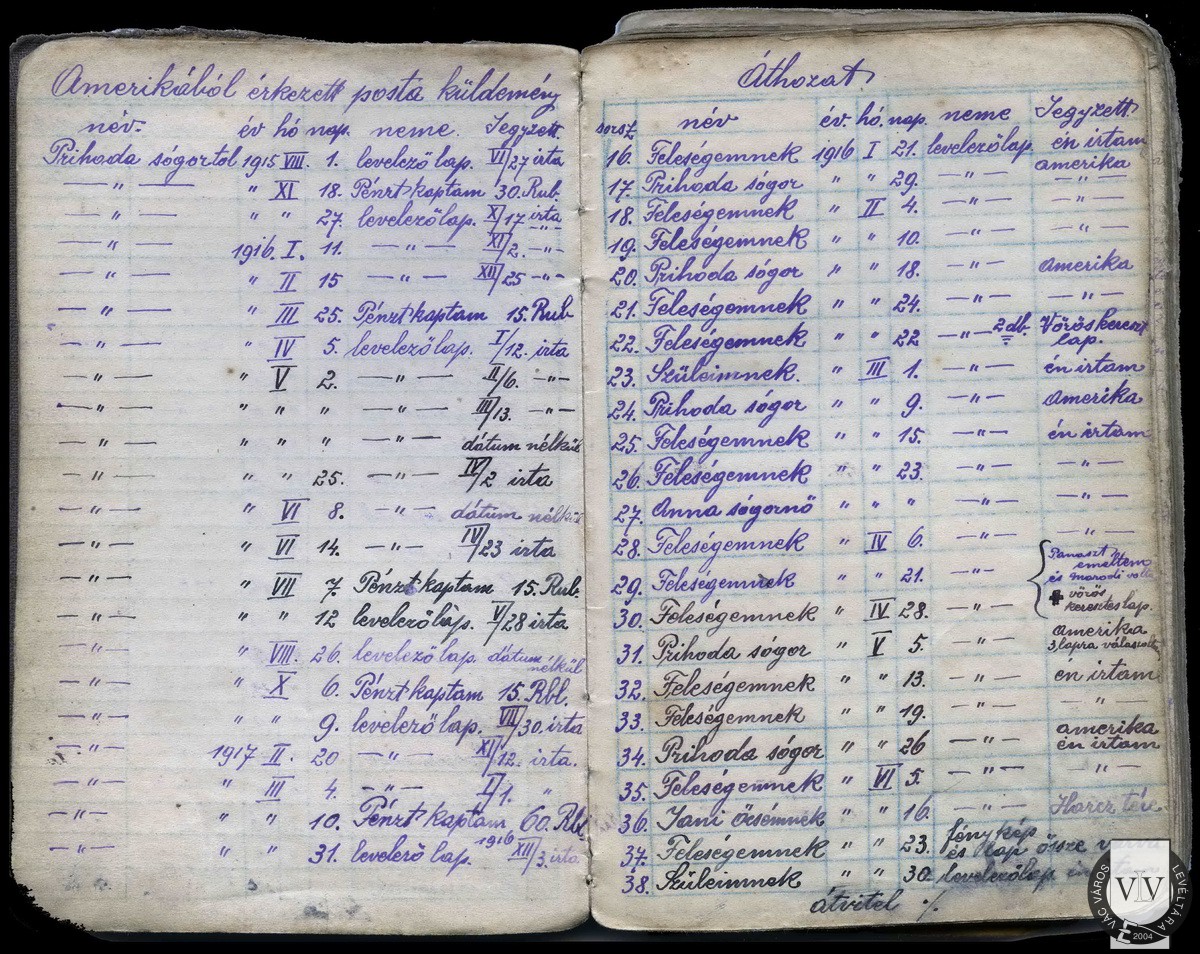 Amerikából érkezett posta küldemény
név. év hó nap. neme. Jegyzett.
Prihoda sógortol 1915 VIII. 1. levelező lap. VI/27 irta
— " — " XI 18. Pénzt kaptam 30. Rub.
— " — " " 27. levelezőlap. X/17 irta
— " — 1916. I. 11. — " — XI/2. — " —
— " — " II 15 — " — XII/25 — " —
— " — " III 25. Pénzt kaptam 15. Rub
— " — " IV 5. levelező lap. I/12. irta
— " — " V 2. — " — II/6. — " —
— " — " " " — " — III/13. — " —
— " — " " " — " — dátum nélkül
— " — " " 25. — " — IV/2 irta
— " — " VI 8. — " — dátum nélkül
— " — " VI 14. — " — IV/23 irta
— " — " VII 7. Pénzt kaptam 15. Rub.
— " — " " 12 levelező lap. V/28 irta
— " — " VIII. 26. levelező lap. dátum nélkül
— " — " X 6. Pénzt kaptam 15. Rbl.
— " — " " 9. levelező lap. VII/30. irta
— " — 1917 II. 20 — " — XI/12. irta.
— " — " III 4. — " — I/1. "
— " — " " 10. Pénzt kaptam 60. Rbl
— " — " " 31. levelező lap. 1916 XII/3. irta
Áthozat
sorsz. név év. hó. nap. neme Jegyzett.
16. Feleségemnek 1916 I 21. levelezőlap. én irtam
17. Prihoda sógor " " 29. — " — amerika — " —
18. Feleségemnek " II 4. — " — — " —
19. Feleségemnek " " 10. — " — — " —
20. Prihoda sógor " " 18. — " — Amerika
21. Feleségemnek " " 24. — " — — " —
22. Feleségemnek " " 22 — " — 2 db. Vöröskereszt lap.
23. Szüleimnek. " III 1. — " — én irtam
24. Prihoda sógor " " 9. — " — Amerika
25. Feleségemnek " " 15. — " — én irtam
26. Feleségemnek " " 23. — " — — " —
27. Anna sógornő " " " — " — — " —
28. Feleségemnek " IV 6. — " — — " —
29. Feleségemnek " " 21. — " — Panaszt emeltem és marodi volt
30. Feleségemnek " IV 28. — " — vörös keresztes lap.
31. Prihoda sógor " V 5. — " — Amerika 3 lapra válaszolt
32. Feleségemnek " " 13. — " — én irtam
33. Feleségemnek " " 19. — " — — " —
34. Prihoda sógor " " 26 — " — amerika én irtam
35. Feleségemnek " VI 5. — " — — " —
36. Jani öcsémnek " " 16. — " — Harcz tére
37. Feleségemnek " " 23. fénykép és lap össze
38. Szüleimnek " " 30. levelezőlap
átvitel ·/.
VÁC VÁROS LEVÉLTÁRA
VVL
2004